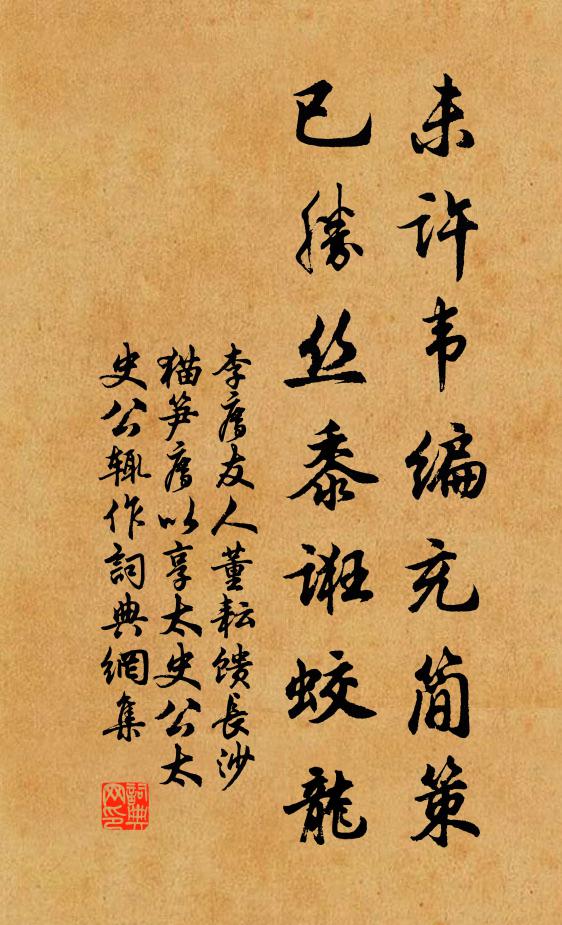 未许韦编充简策
已胜丝黍诳蛟龙
李廌友人董耘馈长沙
猫笋廌以享太史公太
史公辄作詞典網集
詞典网印